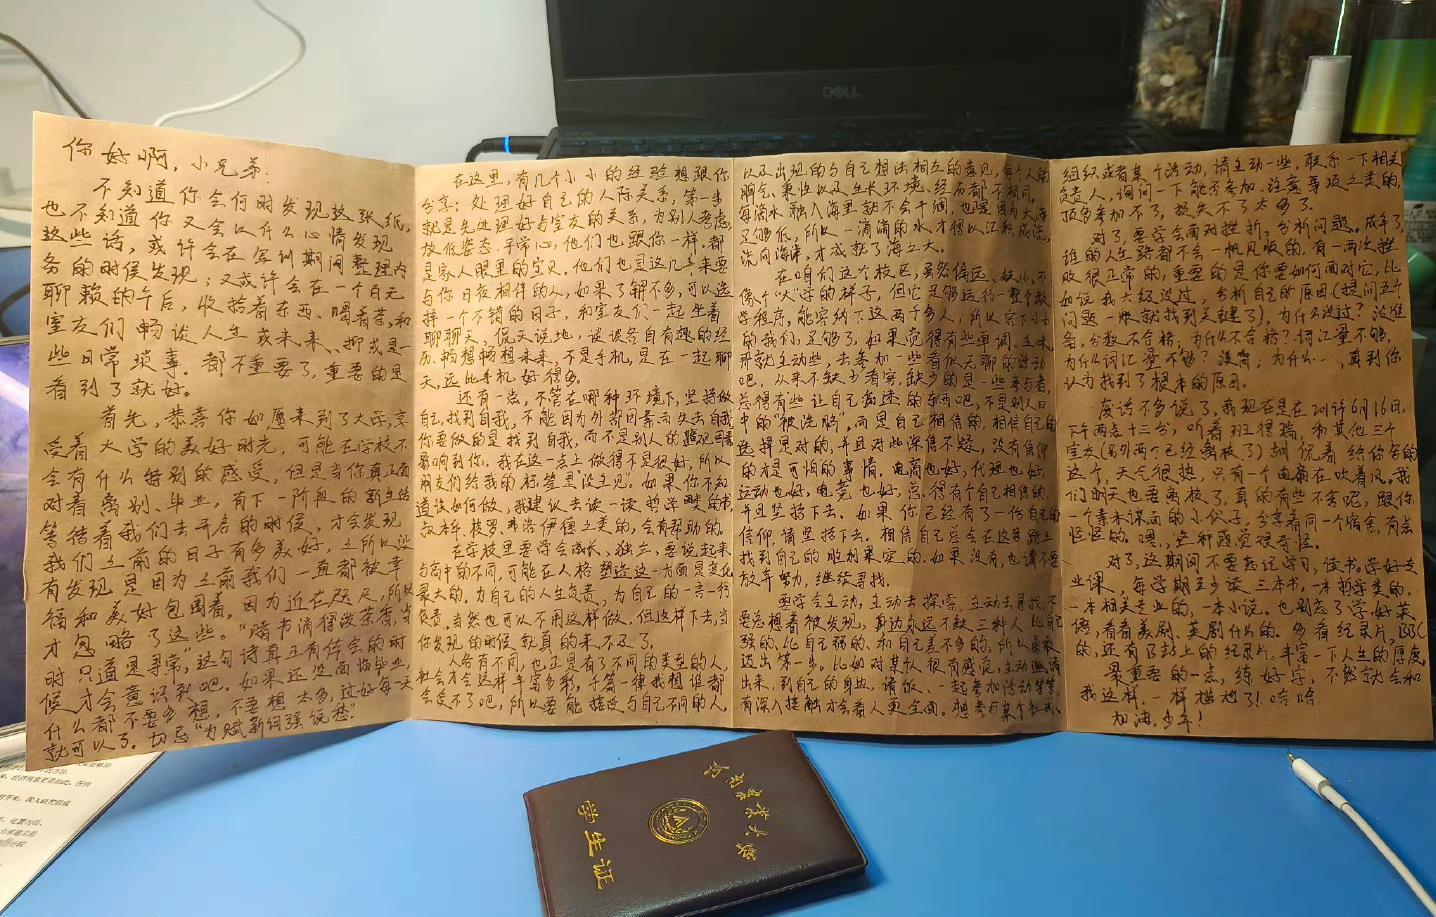 你好啊,小兄弟:
不知道你会何时发现这张纸,
也不知道你又会以什么心情发现
这些话,或许会在军训期间整理内
务的时候发现;又或许会在一个百无
聊赖的午后,收拾着东西、喝着茶,和
室友们畅谈人生或未来、抑或是一
些日常琐事。都不重要了,重要的是
看到了就好。
首先,恭喜你如愿来到了大学,享
受着大学的美好时光,可能在学校不
会有什么特别的感受,但是当你真正面
对着离别、毕业,有下一阶段的新生活
等待着我们去开启的时侯、才会发现
我们之前的日子有多美好,之所以没
有发现是因为之前我们一直都被幸
福和美好包围着,因为近在咫尺,所以
才忽略了这些。“赌书消得泼茶香,当
时只道是寻常”,这句诗真正有体会的时
候才会意识到吧。如果还没面临毕业,
什么都不要多想,不要想太多,过好每一天
就可以了。切忌“为赋新词强说愁”
在这里,有几个小小的经验想跟你
分享:处理好自己的人际关系,第一步
就是先处理好与室友的关系,为别人考虑,
放低姿态,平常心,他们也跟你一样,都
是家人眼里的宝贝。他们也是这几年来要
与你日夜相伴的人,如果了解不多,可以选
择一个不错的日子,和室友们一起坐着
聊聊天,侃天说地,谈谈各自有趣的经
历,畅想畅想未来,不是手机,是在一起聊
天,远比手机好得多。
还有一点,不管在哪种环境下,坚持做
自己,找到自我,不能因为外部因素而失去自我
你要做的是找到自我,而不是别人的
影响到你,我在这一点上做得不是很好,所以
朋友们给我的标签里没主见。如果你不知
道该如何做,我建议去读一读哲学类的书
叔本华、梭罗、弗洛伊德之类的,会有帮助的。
在学校里要学会成长、独立,要说起来
与高中的不同,可能在人格塑造这一方面是变化
最大的。为自己的人生负责,为自己的一言一行
负责,当然也可以不用这样做,但这样下去,当
你发现的时候就真的来不及了。
人各有不同,也正是有了不同的类型的人,
社会才会这样丰富多彩,千篇一律我想谁都
会受不了吧,所以要能接受与自己不同的人,
以及出现的与自己想法相左的意见,每个人的
脾气、秉性以及生长环境、经历都不相同。
每滴水融入海里就不会干涸,也是因为大海
足够低,所以一滴滴的水才得以汇积成流,
流向海洋,才成就了海之大。
在咱们这个校区,虽然偏远、较小,不
像个“大”学的样子,但它足够运行一整个教
学程序,能容纳下这两千多人,所以容下小小
的我们,足够了,如果觉得有些单调、乏味,
那就主动些,去参加一些看似无聊的活动
吧,从来不缺少看客,缺少的是一些参与者,
总得有些让自己痴迷的东西吧,不是别人口
中的“被洗脑”,而是自己相信的,相信自己的
选择是对的,并且对此深信不疑,没有信仰
的才是可怕的事情,电商也好,代理也好,
运动也好,电竞也好,总得有个自己相信的,
并且坚持下去。如果你已经有了一份自己的
信仰,请坚持下去。相信自己总会在这条路上
找到自己的胜利果实的,如果没有,也请不要
放弃努力,继续寻找。
要学会主动,主动去探索,主动去寻找,不
要总想着被发现,身边永远不缺三种人,比自己
强的、比自己弱的、和自己差不多的,所以勇敢
迈出第一步。比如对某人很有感觉,主动邀请
出来,到自己的身边,请饭、一起参加活动等等,
有深入接触才会看人更全面。想参与某个社团、
组织或者某个活动,请主动一些,联系一下相关
负责人,询问一下能否参加、注意事项之类的,
顶多参加不了,损失不了太多了。
对了,要学会面对挫折,分析问题。成年了,
谁的人生路都不会一帆风顺的,有一两次挫
败很正常的,重要的是你要如何面对它,比
如说我六级没过,分析自己的原因(提问五个
问题一般就找到关键了),为什么没过?没准
备,分数不合格;为什么不合格?词汇量不够,
为什么词汇量不够?没背,为什么…,直到你
认为找到了根本的原因。
废话不多说了,我现在是在2019年6月16日,
下午两点十三分,听着班得瑞,和其他三个
室友(另外两个已经离校了)胡侃着给你写的
这个,天气很热,只有一个电扇在吹着风。我
们明天也要离校了,真的有些不舍呢,跟你
一个素未谋面的小伙子,分享着同一个宿舍,有点
怪怪的。嗯,这种感觉很奇怪。
对了,这期间不要忘记学习,读书,学好专
业课,每学期至少读三本书,一本哲学类的,
一本相关专业的,一本小说。也别忘了学好英
语,看看美剧、英剧什么的。多看纪录片,BBC
的,还有B站上的纪录片,丰富一下人生的厚度。
最重要的一点,练好字,不然就会和
我这样一样尴尬了!哈哈
加油,少年!
DELL
河南农业大学
学生证